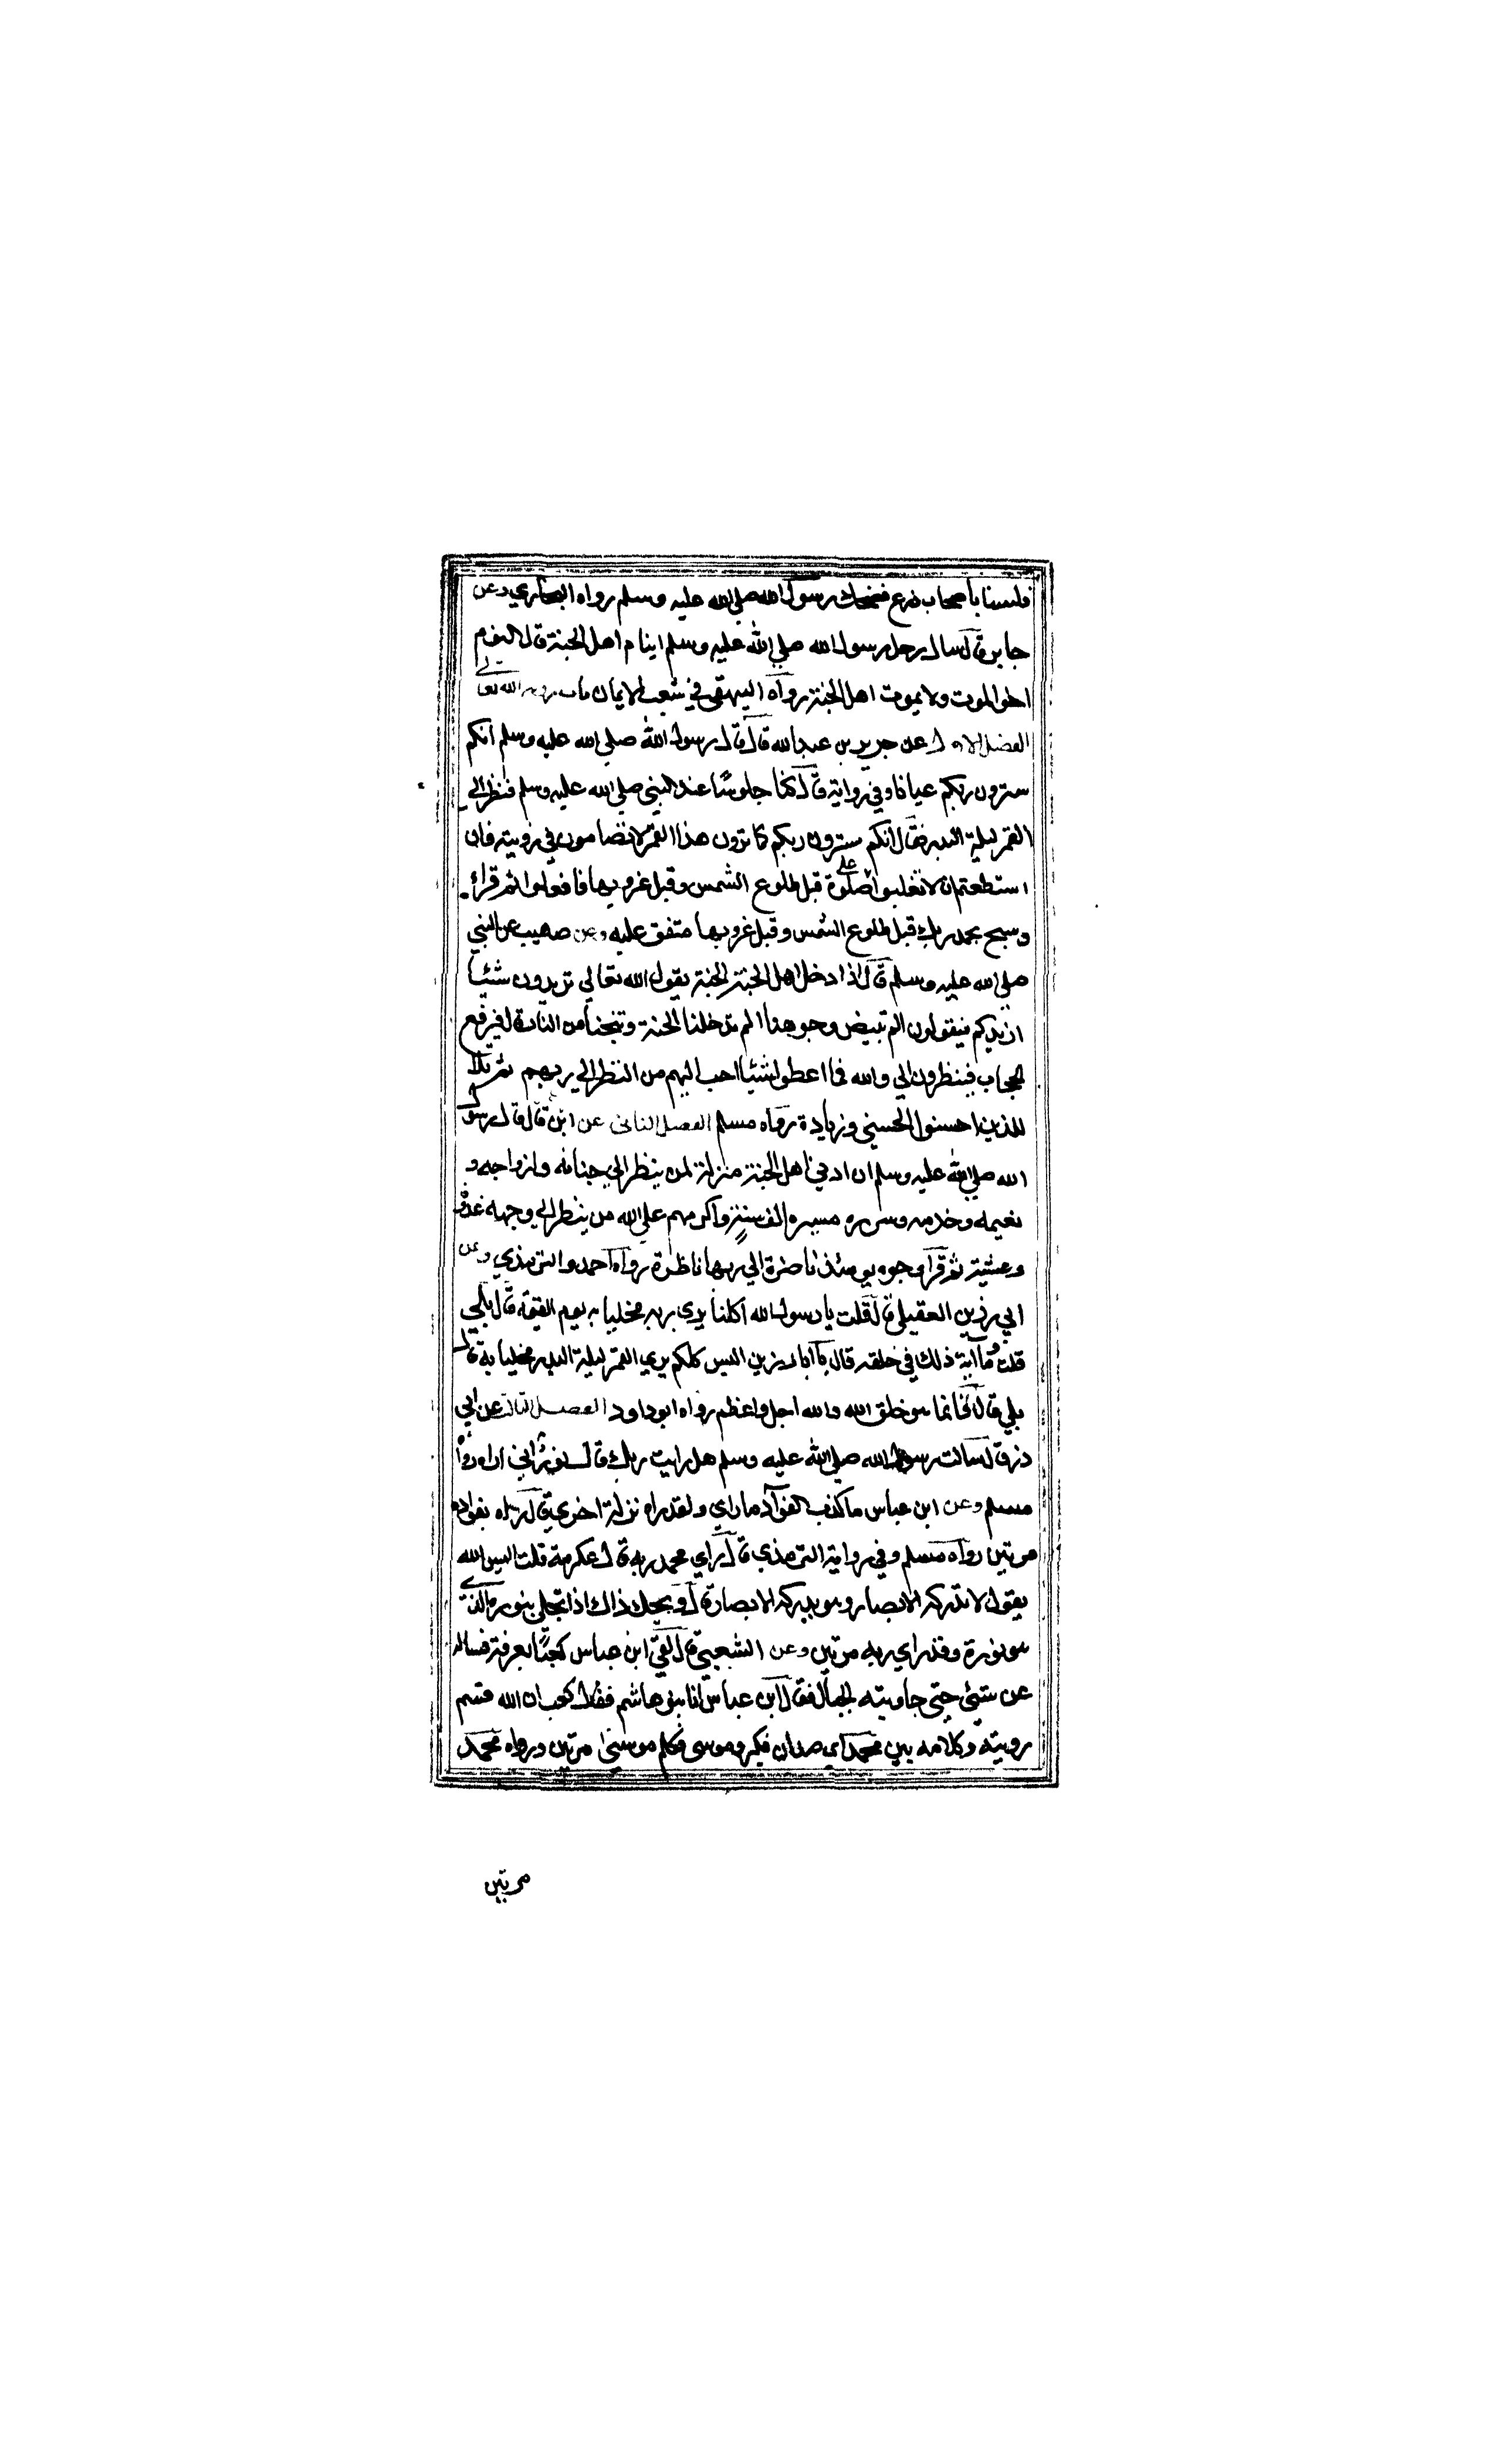 فلسنا باصحاب زرع فضحك رسول الله صلي الله عليه وسلم رواه البخاري وعن
جابر قال سال رجل رسول الله صلي الله عليه وسلم اينام اهل الجنة قال النوم
اخو الموت ولا يموت اهل الجنة رواه البيهقي في شعب الايمان باب روية الله تعالي
الفصل الاول عن جرير بن عبدالله قال قال رسول الله صلي الله عليه وسلم انكم
سترون ربكم عيانا وفي رواية قال كنا جلوسًا عند النبي صلي الله عليه وسلم فنظر الي
القمر ليلة البدر فقال انكم سترون ربكم كما ترون هذا القمر لا تضامون في رويته فان
استطعتم ان لا تغلبوا علي صلوة قبل طلوع الشمس وقبل غروبها فافعلوا ثم قراء
وسبح بحمد ربك قبل طلوع الشمس وقبل غروبها متفق عليه وعن صهيب عن النبي
صلي الله عليه وسلم قال اذا دخل اهل الجنة الجنة يقول الله تعالي تريدون شئيا
ازيدكم فيقولون الم تبيض وجوهنا الم تدخلنا الجنة وتنجنا من النار قال فيرفع
الحجاب فينظرون الي والله فما اعطوا شئيا احب اليهم من النظر الي ربهم ثم تلا
للذين احسنوا الحسني وزيادة رواه مسلم الفصل الثاني عن ابن قال قال رسول
الله صلي الله عليه وسلم ان ادني اهل الجنة منزلة لمن ينظر الي جنانه وازواجه و
نعيمه وخدمه وسرره مسيره الف سنة واكرمهم علي الله من ينظر الي وجهه غدوة
وعشية ثم قرا وجوه يومئذ ناضرة الي ربها ناظرة رواه احمد والترمذي وعن
ابي رزين العقيلي قال قلت يا رسول الله اكلنا يري ربه مخليا به يوم القيمة قال بلي
قلت وما آية ذلك في خلقه قال يا ابا رزين اليس كلكم يري القمر ليلة البدر مخليا به قال
بلي قال فانما هو خلق الله والله اجل واعظم رواه ابو داود الفصل الثالث عن ابي
ذر قال سالت رسول الله صلي الله عليه وسلم هل رايت ربك قال نور اني اراه رواه
مسلم وعن ابن عباس ما كذب الفوآد ما راي ولقد راه نزلة اخري قال راه بفواده
مرتين رواه مسلم وفي رواية الترمذي قال راي محمد ربه قال عكرمة قلت اليس الله
يقول لا تدركه الابصار وهو يدركه الابصار قال ويحك ذاك اذا تجلي بنوره الذي
هو نوره وقد راي ربه مرتين وعن الشعبي قال لقي ابن عباس كعبًا بعرفة فساله
عن شئي حتي جاوبته الجبال فقال ابن عباس انا بنو هاشم فقال كعب ان الله قسم
رويته وكلامه بين محمد وموسي فكلم موسي مرتين ورواه محمد
مرتين